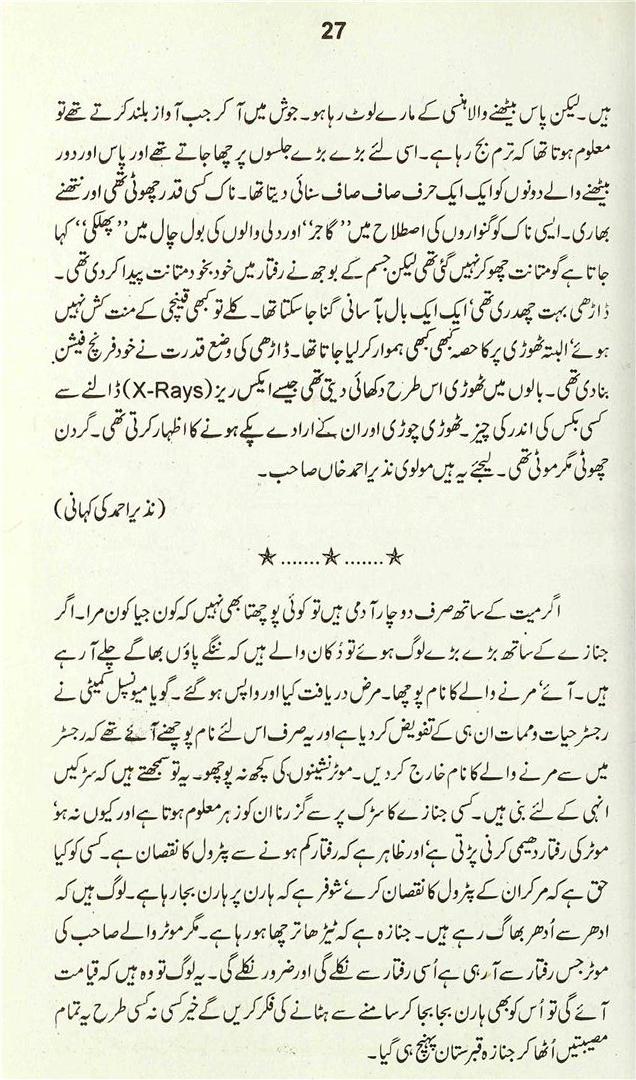 27
ہیں۔ لیکن پاس بیٹھنے والا ہنسی کے مارے لوٹ رہا ہو۔ جوش میں آ کر جب آواز بلند کرتے تھے تو
معلوم ہوتا تھا کہ ترم بج رہا ہے۔ اسی لئے بڑے بڑے جلسوں پر چھا جاتے تھے اور پاس اور دور
بیٹھنے والے دونوں کو ایک ایک حرف صاف صاف سنائی دیتا تھا۔ ناک کسی قدر چھوٹی تھی اور نتھنے
بھاری۔ ایسی ناک کو گنواروں کی اصطلاح میں ’’گاجر‘‘ اور دلی والوں کی بول چال میں ’’پھلکی‘‘ کہا
جاتا ہے گو متانت چھو کر نہیں گئی تھی لیکن جسم کے بوجھ نے رفتار میں خود بخود متانت پیدا کر دی تھی۔
ڈاڑھی بہت چھدری تھی‘ ایک ایک بال بآسانی گنا جا سکتا تھا۔ کلے تو کبھی قینچی کے منت کش نہیں
ہوئے‘ البتہ ٹھوڑی پر کا حصہ کبھی کبھی ہموار کر لیا جاتا تھا۔ ڈاڑھی کی وضع قدرت نے خود فرنچ فیشن
بنا دی تھی۔ بالوں میں ٹھوڑی اس طرح دکھائی دیتی تھی جیسے ایکس ریز (X-Rays) ڈالنے سے
کسی بکس کی اندر کی چیز۔ ٹھوڑی چوڑی اور ان کے ارادے پکے ہونے کا اظہار کرتی تھی۔ گردن
چھوٹی مگر موٹی تھی۔ لیجئے یہ ہیں مولوی نذیر احمد خاں صاحب۔
(نذیر احمد کی کہانی)
☆.......☆.......☆
اگر میت کے ساتھ صرف دو چار آدمی ہیں تو کوئی پوچھتا بھی نہیں کہ کون جیا کون مرا۔ اگر
جنازے کے ساتھ بڑے بڑے لوگ ہوئے تو دُکان والے ہیں کہ ننگے پاؤں بھاگے چلے آ رہے
ہیں۔ آئے‘ مرنے والے کا نام پوچھا۔ مرض دریافت کیا اور واپس ہو گئے۔ گویا میونسپل کمیٹی نے
رجسٹر حیات و ممات ان ہی کے تفویض کر دیا ہے اور یہ صرف اس لئے نام پوچھنے آئے تھے کہ رجسٹر
میں سے مرنے والے کا نام خارج کر دیں۔ موٹر نشینوں کی کچھ نہ پوچھو۔ یہ تو سمجھتے ہیں کہ سڑکیں
انہی کے لئے بنی ہیں۔ کسی جنازے کا سڑک پر سے گزرنا ان کو زہر معلوم ہوتا ہے اور کیوں نہ ہو‘
موٹر کی رفتار دھیمی کرنی پڑتی ہے‘ اور ظاہر ہے کہ رفتار کم ہونے سے پٹرول کا نقصان ہے۔ کسی کو کیا
حق ہے کہ مر کر ان کے پٹرول کا نقصان کرے‘ شوفر ہے کہ ہارن پر ہارن بجا رہا ہے۔ لوگ ہیں کہ
ادھر سے اُدھر بھاگ رہے ہیں۔ جنازہ ہے کہ ٹیڑھا ترچھا ہو رہا ہے۔ مگر موٹر والے صاحب کی
موٹر جس رفتار سے آ رہی ہے اُسی رفتار سے نکلے گی اور ضرور نکلے گی۔ یہ لوگ تو وہ ہیں کہ قیامت
آئے گی تو اُس کو بھی ہارن بجا بجا کر سامنے سے ہٹانے کی فکر کریں گے خیر کسی نہ کسی طرح یہ تمام
مصیبتیں اُٹھا کر جنازہ قبرستان پہنچ ہی گیا۔